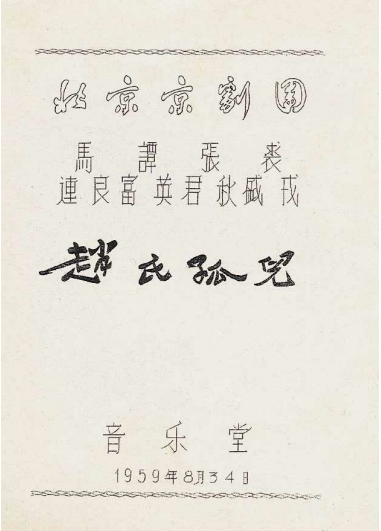 北京京劇團
馬 譚 張 裘
連良富英君秋盛戎
趙氏孤兒
音乐堂
1959年8月3 4日